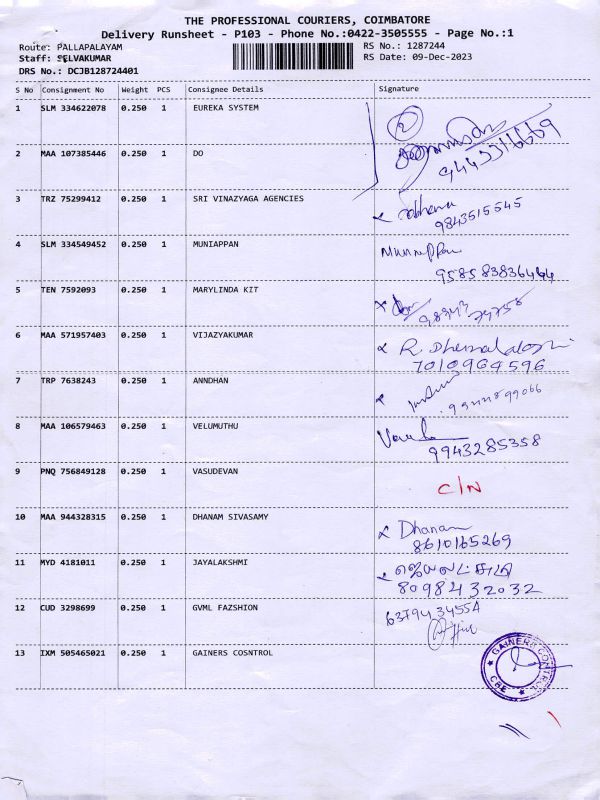 THE PROFESSIONAL COURIERS, COIMBATORE
Delivery Runsheet - P103 - Phone No.:0422-3505555 - Page No.:1
Route: PALLAPALAYAM
RS No.: 1287244
Staff: SELVAKUMAR
RS Date: 09-Dec-2023
DRS No.: DCJB128724401
S No Consignment No Weight PCS Consignee Details Signature
1 SLM 334622078 0.250 1 EUREKA SYSTEM 2
2 MAA 107385446 0.250 1 DO 9443316669
3 TRZ 75299412 0.250 1 SRI VINAZYAGA AGENCIES
9843515545
4 SLM 334549452 0.250 1 MUNIAPPAN Muniappan
9585383644
5 TEN 7592093 0.250 1 MARYLINDA KZT
6 MAA 571957403 0.250 1 VIJAZYAKUMAR
7010964596
7 TRP 7638243 0.250 1 ANNDHAN
8 MAA 106579463 0.250 1 VELUMUTHU
9943285358
9 PNQ 756849128 0.250 1 VASUDEVAN
C/N
10 MAA 944328315 0.250 1 DHANAM SIVASAMY Dhanam
8610165269
11 MYD 4181011 0.250 1 JAYALAKSHMI
8098432032
12 CUD 3298699 0.250 1 GVML FAZSHION
13 IXM 505465021 0.250 1 GAINERS COSNTROL
GAINERS CONTROL
CBE